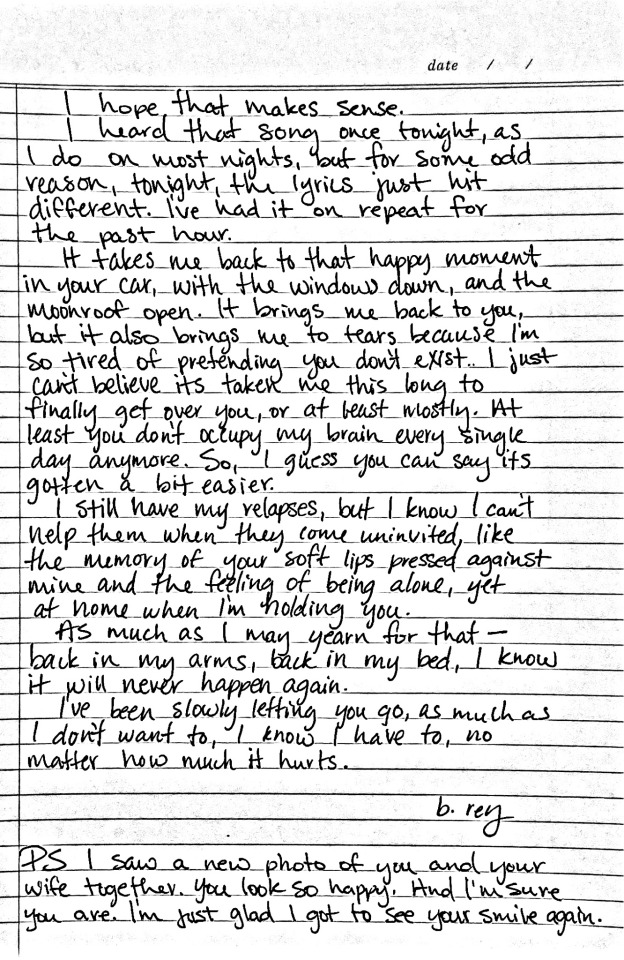 date / /
I hope that makes sense.
I heard that song once tonight, as
I do on most nights, but for some odd
reason, tonight, the lyrics just hit
different. I've had it on repeat for
the past hour.
It takes me back to that happy moment
in your car, with the windows down, and the
moonroof open. It brings me back to you,
but it also brings me to tears because I'm
so tired of pretending you don't exist.. I just
can't believe its taken me this long to
finally get over you, or at least mostly. At
least you don't occupy my brain every single
day anymore. So, I guess you can say its
gotten a bit easier.
I still have my relapses, but I know I can't
help them when they come uninvited, like
the memory of your soft lips pressed against
mine and the feeling of being alone, yet
at home when I'm holding you.
As much as I may yearn for that —
back in my arms, back in my bed, I know
it will never happen again.
I've been slowly letting you go, as much as
I don't want to, I know I have to, no
matter how much it hurts.
b. rey
PS I saw a new photo of you and your
wife together. You look so happy. And I'm sure
you are. I'm just glad I got to see your smile again.